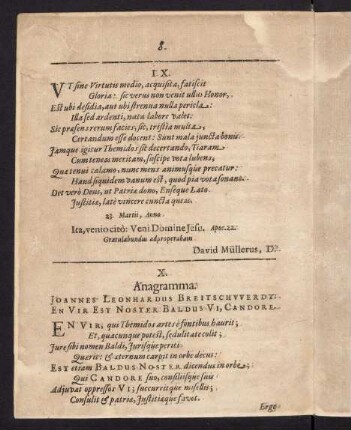 8.
IX.
VT sine Virtutis medio, acquisita, fatiscit
Gloria: sic verus non venit ullus Honor,
Est ubi desidia, aut ubi strenua nulla pericla:
Illa sed ardenti, nata labore valet.
Sic præsens rerum facies, sic, tristia multa,
Certandum esse docent: Sunt mala juncta bonis.
Jamque igitur Themidos sic decertando, Tiaram
Cum teneas meritam, suscipe vota lubens,
Quæ tenui calamo, nunc mens animusque precatur:
Haud siquidem vanum est, quod pia vota sonant.
Det verò Deus, ut Patriæ dono, Euséque Lato
Justitiæ, latè vincere cuncta queas.
23 Martii, Anno
Ita, venio citò: Veni Domine Jesu. Apoc. 22.
Gratulabundus adproperabam
David Müllerus, D.
X.
Anagramma.
JOANNES LEONHARDUS BREITSCHVVERDT.
EN VIR EST NOSTER BALDUS VI, CANDORE.
EN VIR; qui Themidos artes è fontibus haurit;
Et, quacunque potest, sedulitate colit;
Jure sibi nomen Baldi, Jurisque periti
Quærit: & æternum cargit in orbe decus:
Est etiam BALDUS NOSTER dicendus in orbe;
Qui CANDORE suo, consiliisque suis
Adjuvat oppressos VI; succurritque misellis;
Consulit & patriæ, Justitiæque favet.
Ergo